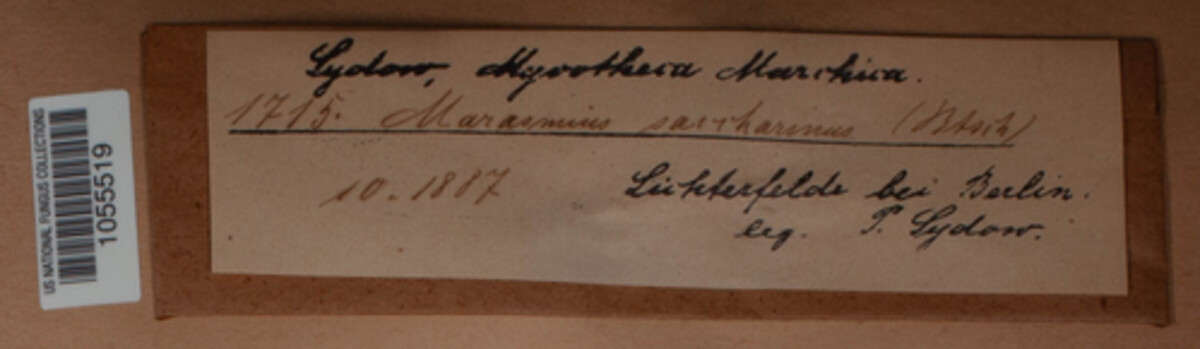 US NATIONAL FUNGUS COLLECTIONS
1055519
Sydow, Mycotheca Marchica.
1715. Marasmius saccharinus (Btsch)
10. 1887
Lichterfelde bei Berlin.
leg. P. Sydow.